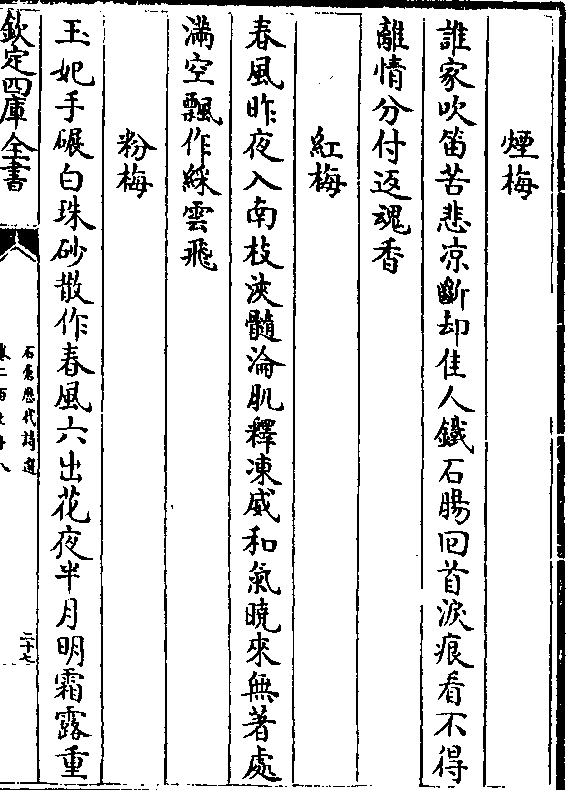 煙梅
誰家吹笛苦悲凉斷却佳人鐵石腸回首淚痕看不得
離情分付返魂香
紅梅
春風昨夜入南枝浹髓淪肌釋凍威和氣曉來無著處
滿空飄作綵雲飛
粉梅
玉妃手碾白珠砂散作春風六出花夜半月明霜露重
欽定四庫全書
石倉歷代詩選
二十七